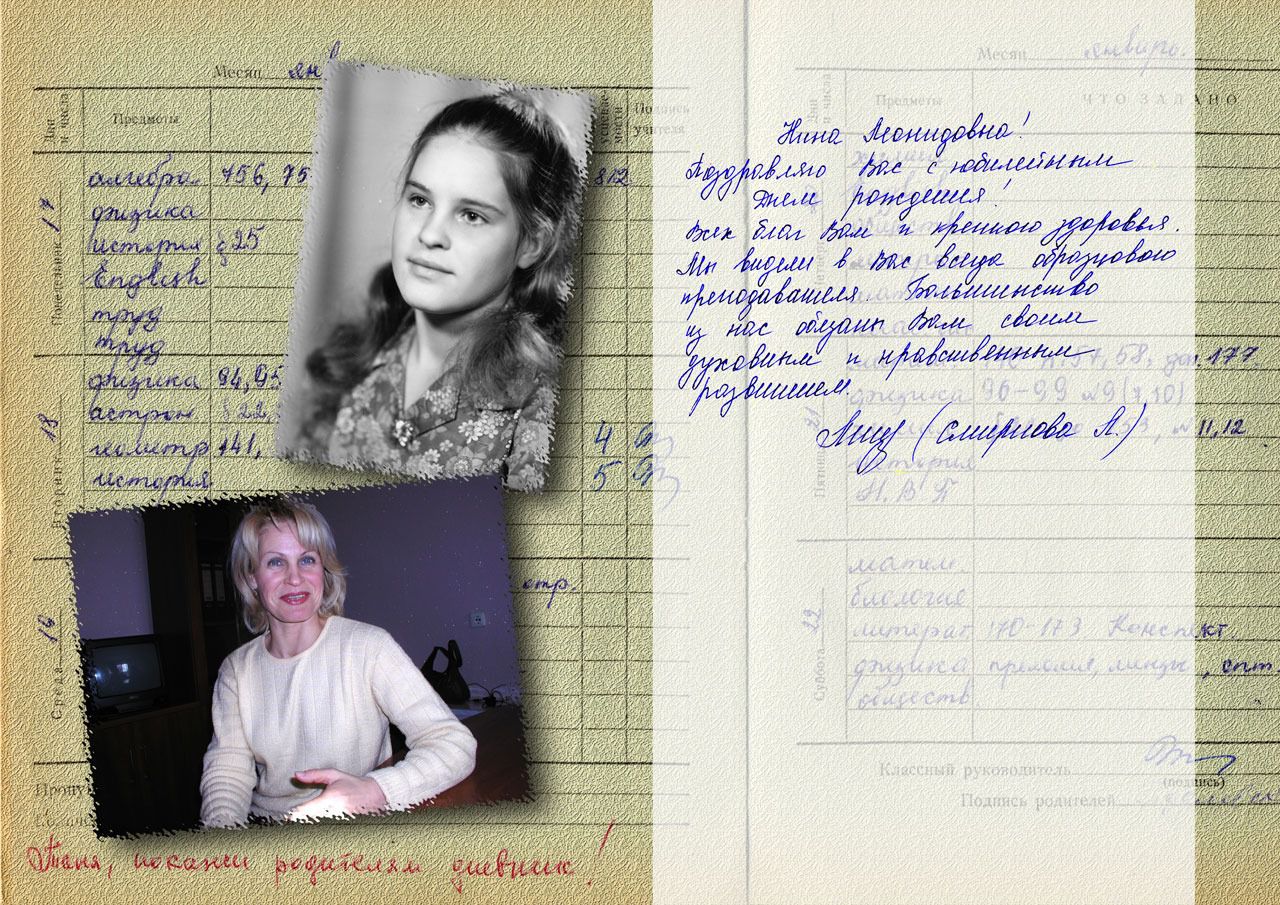 Месяц янв
Дни и числа
Предметы
успеваемости
Подпись учителя
Понедельник 17
алгебра 756, 75 812
физика
история § 25
English
труд
труд
Вторник 18
физика 94, 95
астрон § 22,
геометр 141, 4
история 5
Среда
стр.
Пропу
Таня, покажи родителям дневник!
Месяц январь.
Дни и числа
Предметы
ЧТО ЗАДАНО
Нина Леонидовна!
Поздравляю Вас с юбилейным
Днем рождения!
Всех благ Вам и крепкого здоровья.
Мы видели в Вас всегда образцового
преподавателя. Большинство
из нас обязаны Вам своим
духовным и нравственным
развитием.
(Смирнова Л.)
57, 58, доп. 177.
Пятница 21
физика 96-99 №9(7,10)
11,12.
история
Н.В П
Суббота 22
матем.
биология
литерат. 170-173 Конспект.
физика прелом
обществ.
Классный руководитель
(подпись)
Подпись родителей